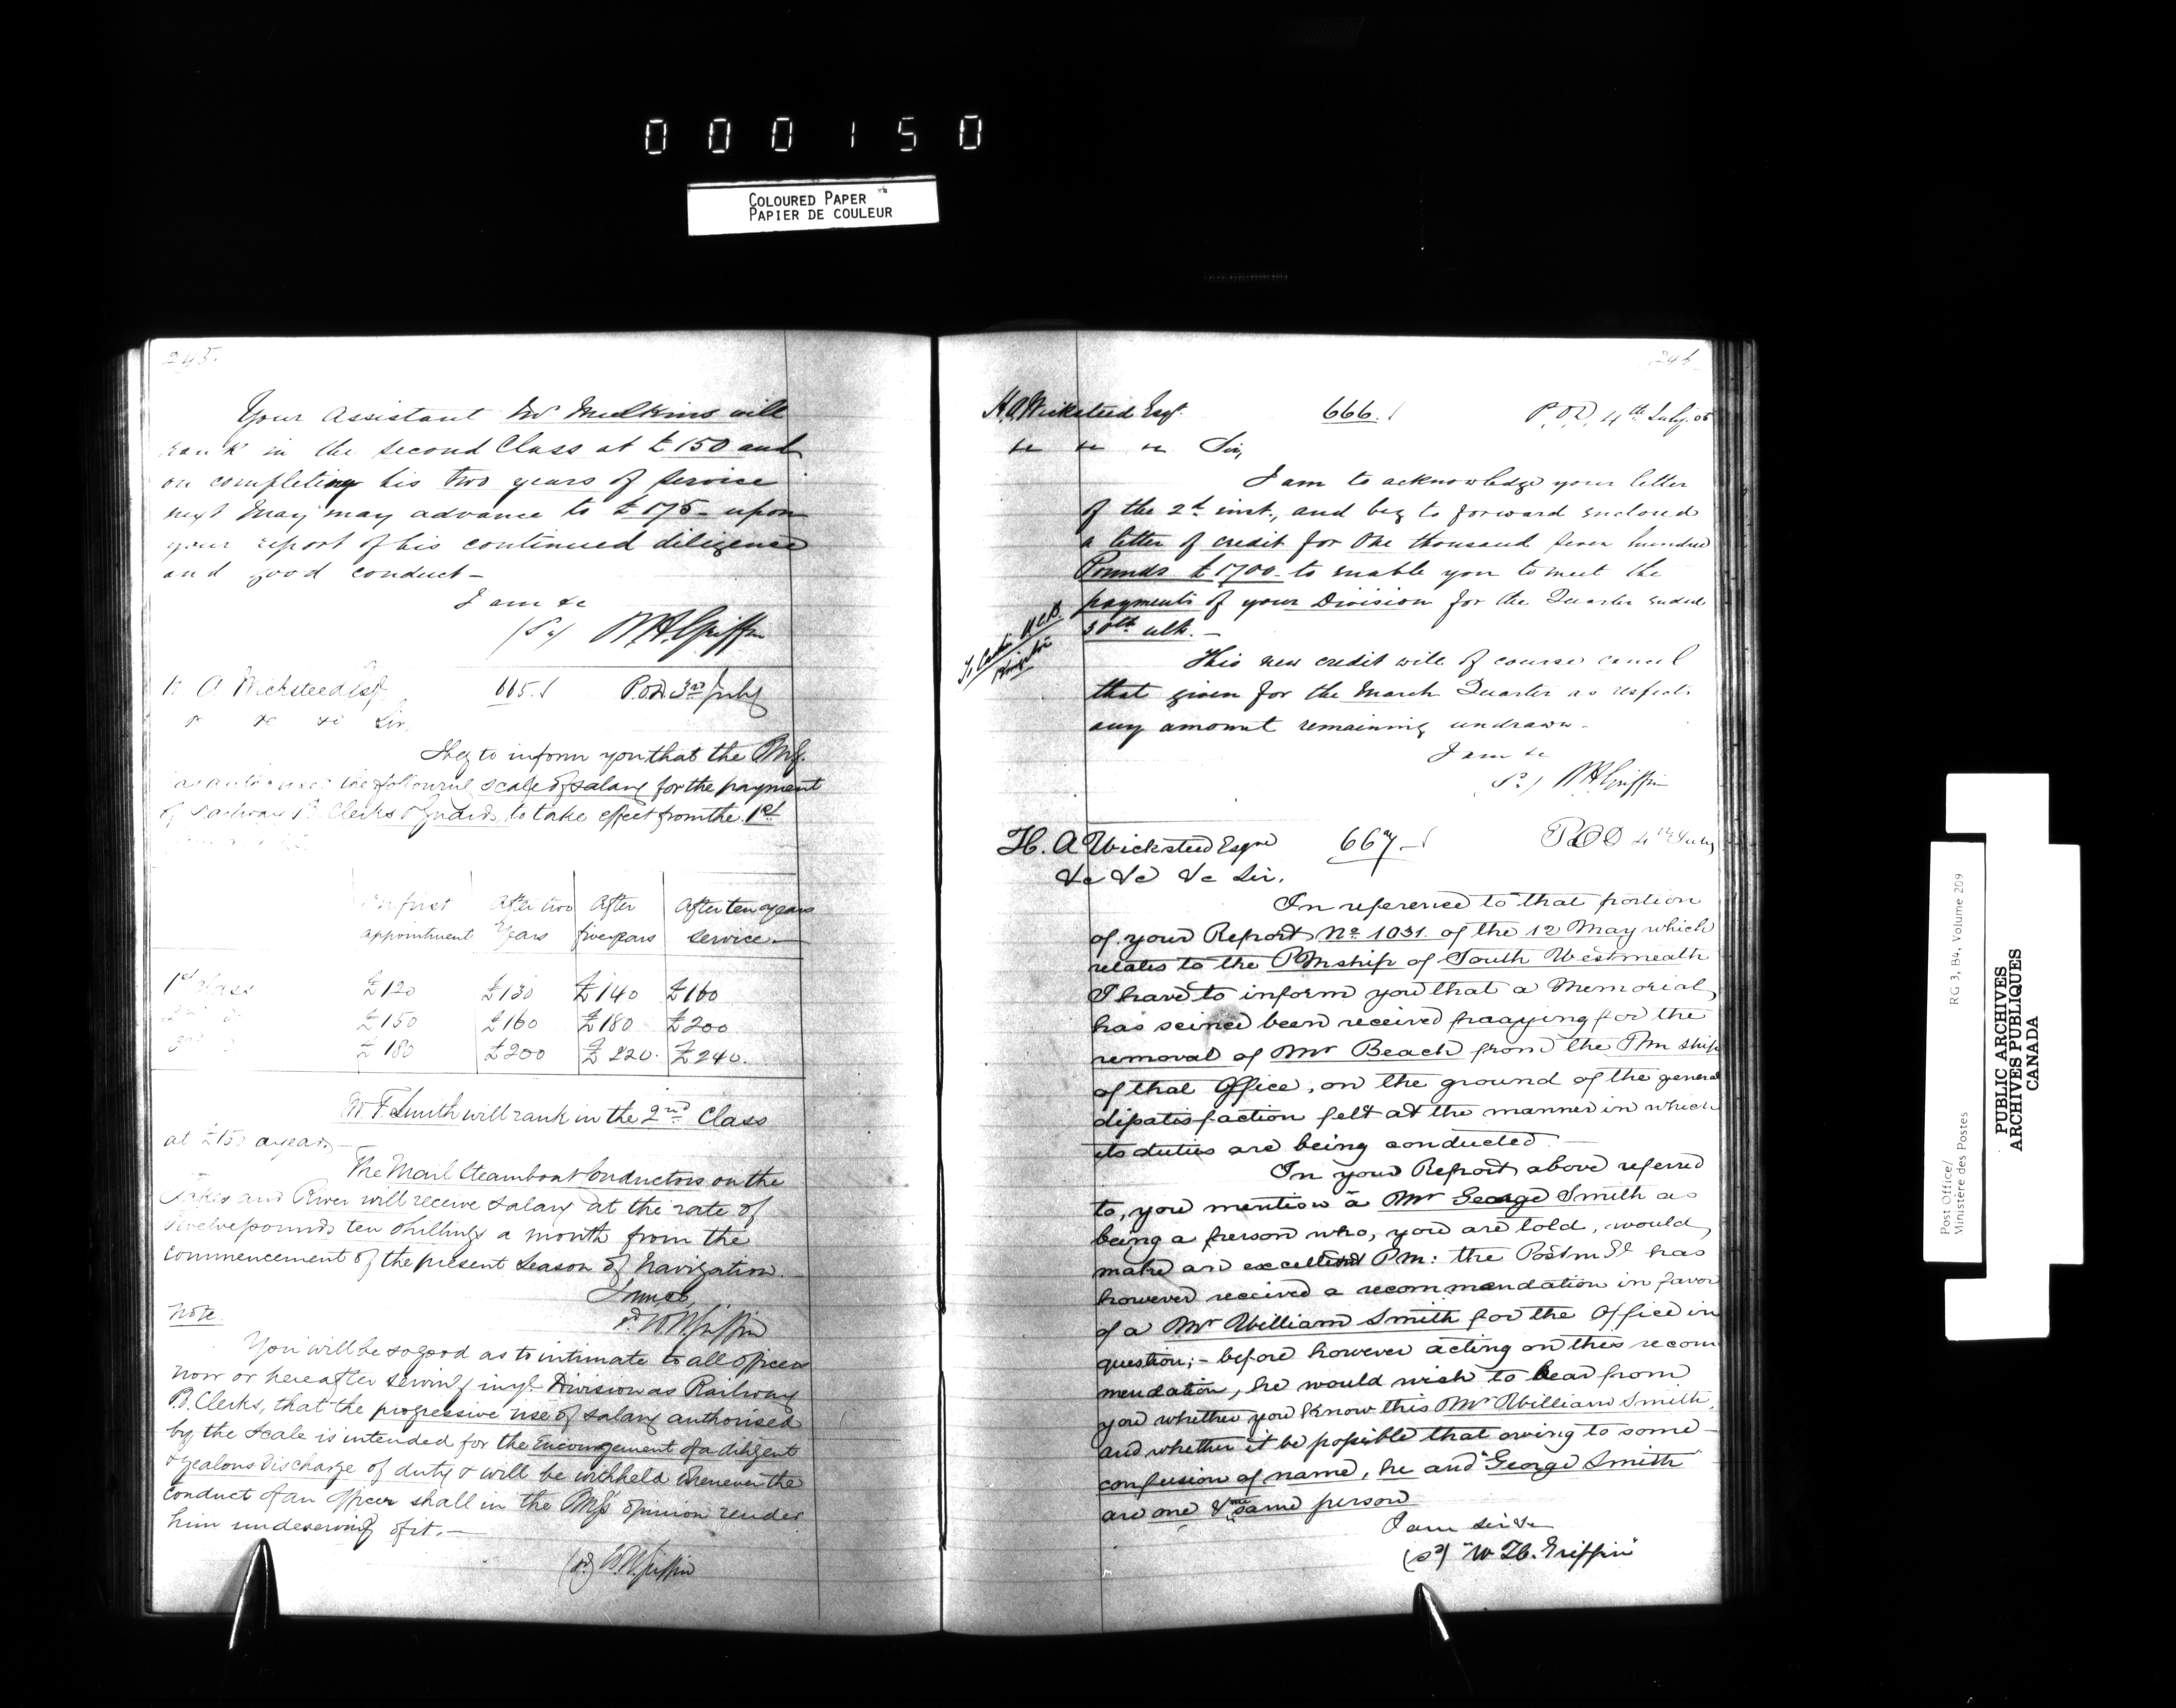 000150
COLOURED PAPER
PAPIER DE COULEUR
245.
Your Assistant Mr Mulkins will
rank in the second Class at £150 and
on completing his two years of service
next May may advance to £175 - upon
your report of his continued diligence
and good conduct -
I am &c
WHGriffin
H A Wicksteed Esq
665. P.O.D. 3rd July
&c &c Sir,
I beg to inform you that the PMG.
the following scale of salary for the payment
of Railway P. Clerks & Guards, to take effect from the 1st
On first After two After After ten years
appointment Years five years service
1st Class £120 £130 £140 £160
£150 £160 £180 £200
£180 £200 £220. £240.
W. F. Smith will rank in the 2nd Class
at £150 a year,
The Mail Steamboat Conductors on the
Lakes and River will receive salary at the rate of
Twelve pounds ten shillings a month from the
commencement of the present season of Navigation.
WHGriffin
Note.
You will be so good as to intimate to all officers
now or hereafter serving in yr Division as Railway
P.O. Clerks, that the progressive rise of salary authorised
by the scale is intended for the Encouragement of a diligent
& zealous discharge of duty & will be withheld whenever the
conduct of an officer shall in the PMG's opinion render
him undeserving of it. -
(sd) WHGriffin
246
H A Wicksteed Esqr. 666. P.O.D. 4th July
&c &c &c Sir,
I am to acknowledge your letter
of the 2d inst., and beg to forward enclosed
a letter of credit for One thousand seven hundred
Pounds £1700 - to enable you to meet the
payments of your Division for the Quarter ended
30th ult. -
This new credit will of course cancel
that given for the March Quarter as respects
any amount remaining undrawn -
I am &c
WHGriffin
H. A Wicksteed Esqre 667 - POD 4th July
&c &c &c Sir.
In reference to that portion
of your Report No 1031. of the 12 May which
relates to the PMship of South Westmeath
I have to inform you that a Memorial,
has seince been received praaying for the
removal of Mr Beach from the PM ship
of that Office, on the ground of the general
dissatisfaction felt at the manner in which
its duties are being conducted. -
In your Report above referred
to, you mention a Mr George Smith as
being a person who, you are told, would,
make an excellent PM: the Postm Gl has
however received a recommendation in favor
of a Mr William Smith for the Office in
question; - before however acting on this recom
mendation, he would wish to hear from
you whether you know this Mr William Smith,
and whether it be possible that owing to some -
confusion of name, he and "George Smith"
are one & the same person
I am Sir &c
(sd) "W H. Griffin"
Post Office/
Ministère des Postes
RG 3, B4, Volume 209
PUBLIC ARCHIVES
ARCHIVES PUBLIQUES
CANADA